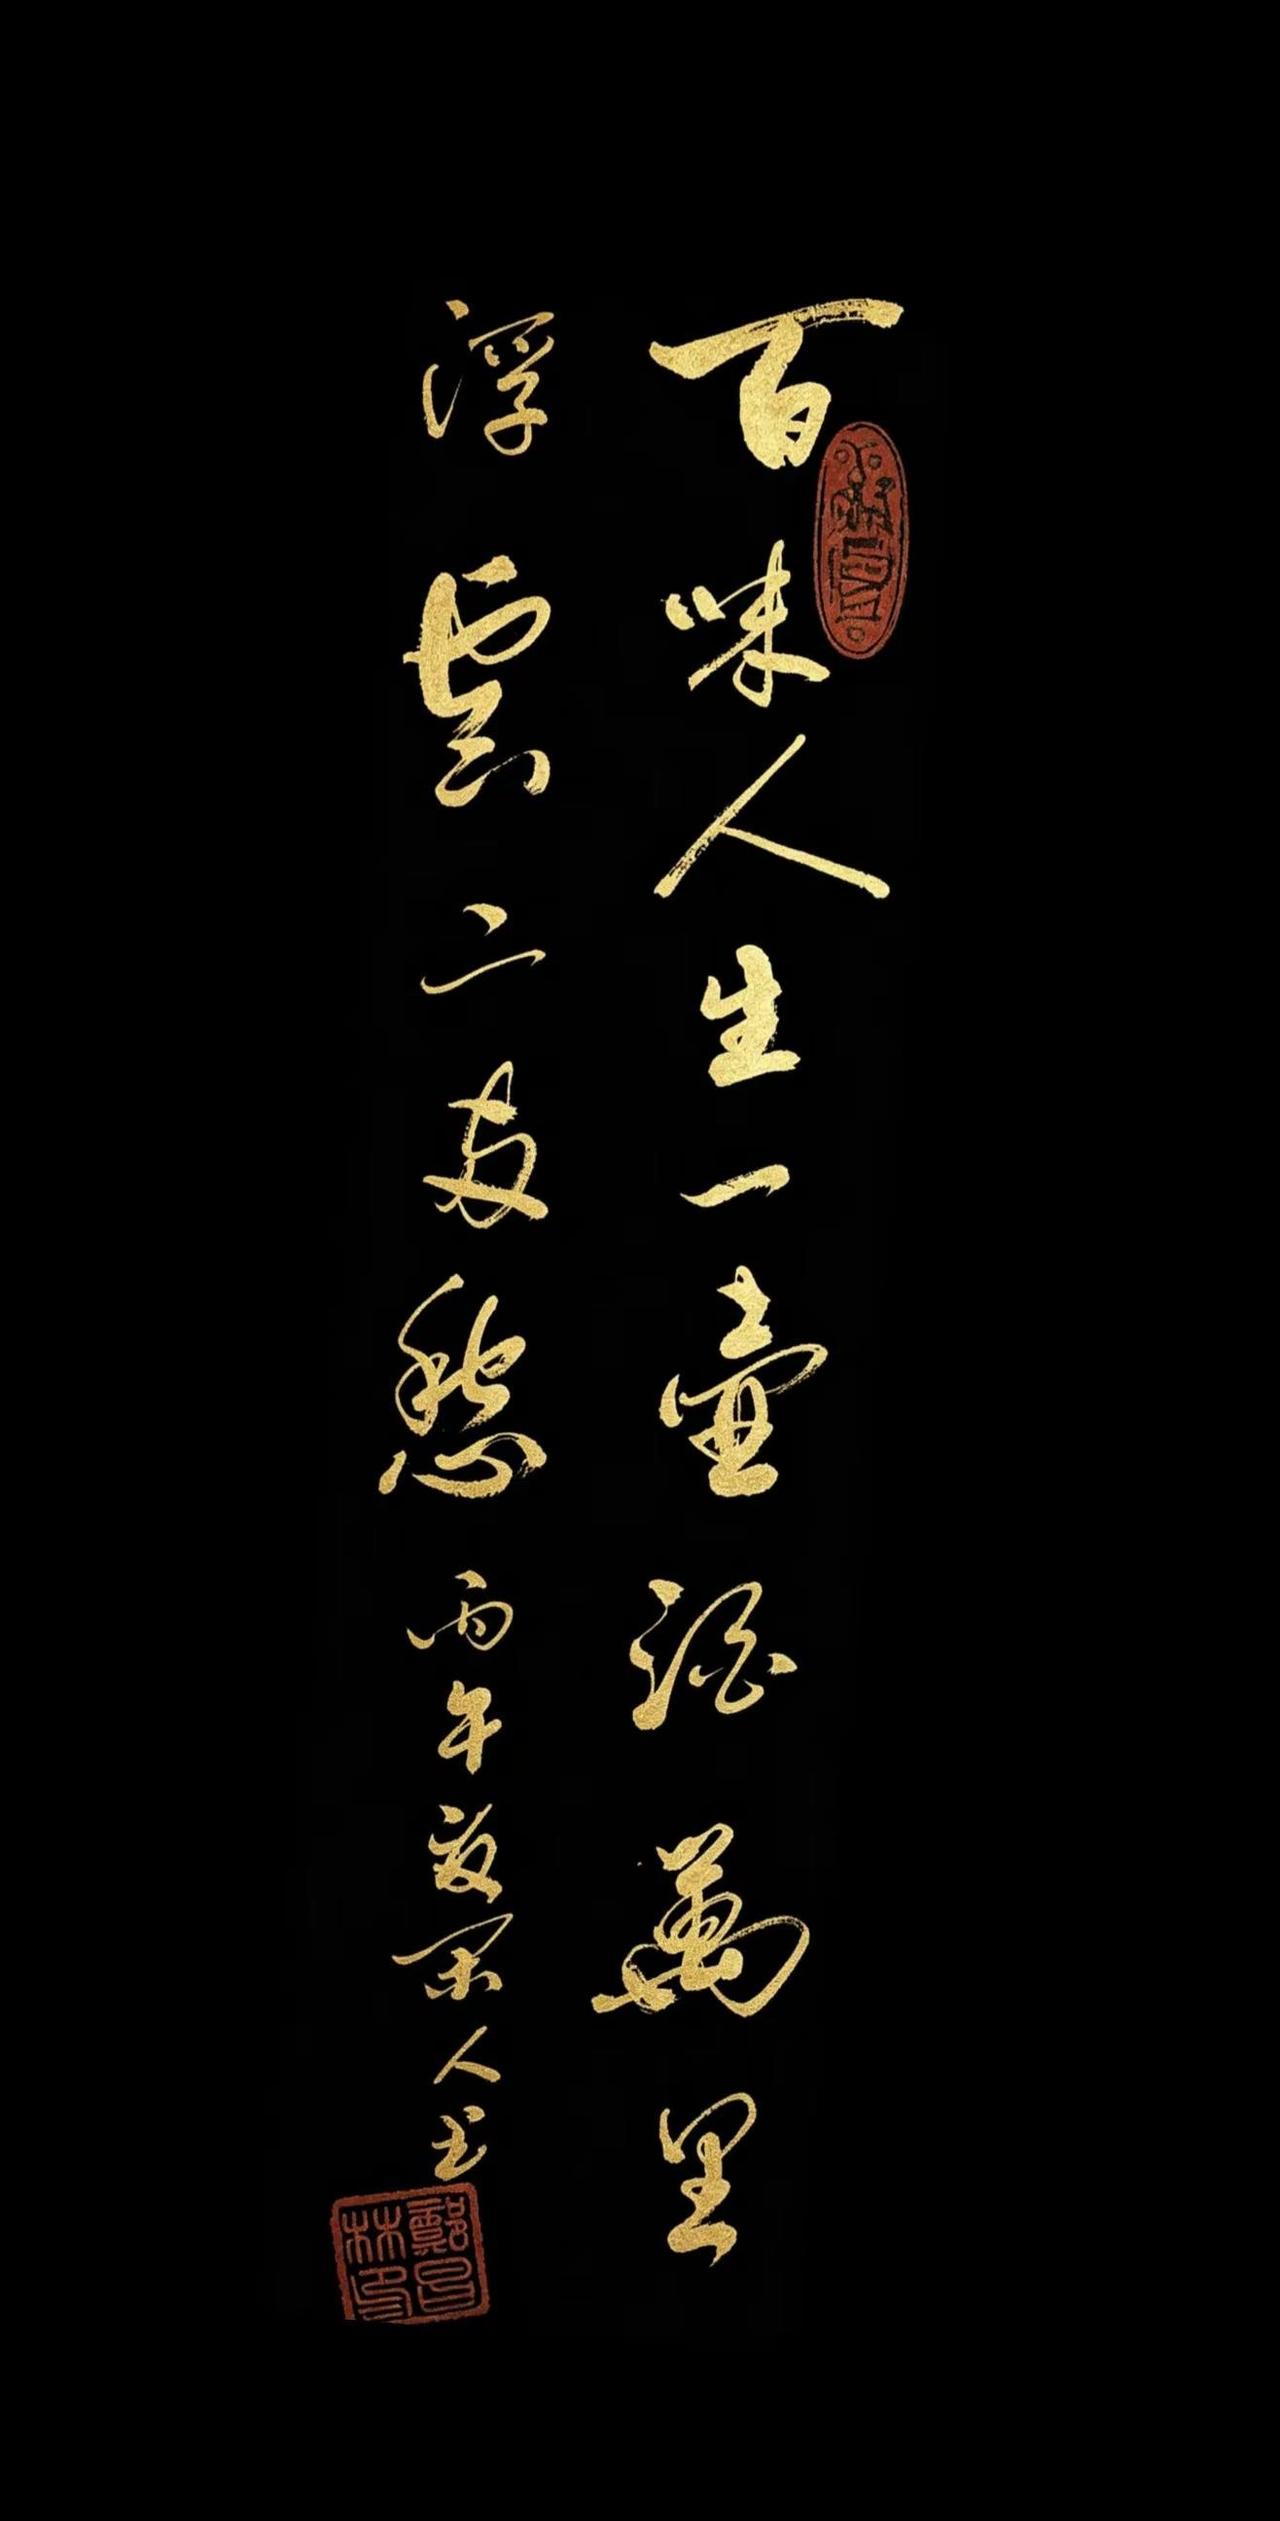 百味人生一壺酒萬里
浮雲二愁
丙午夏閑人书